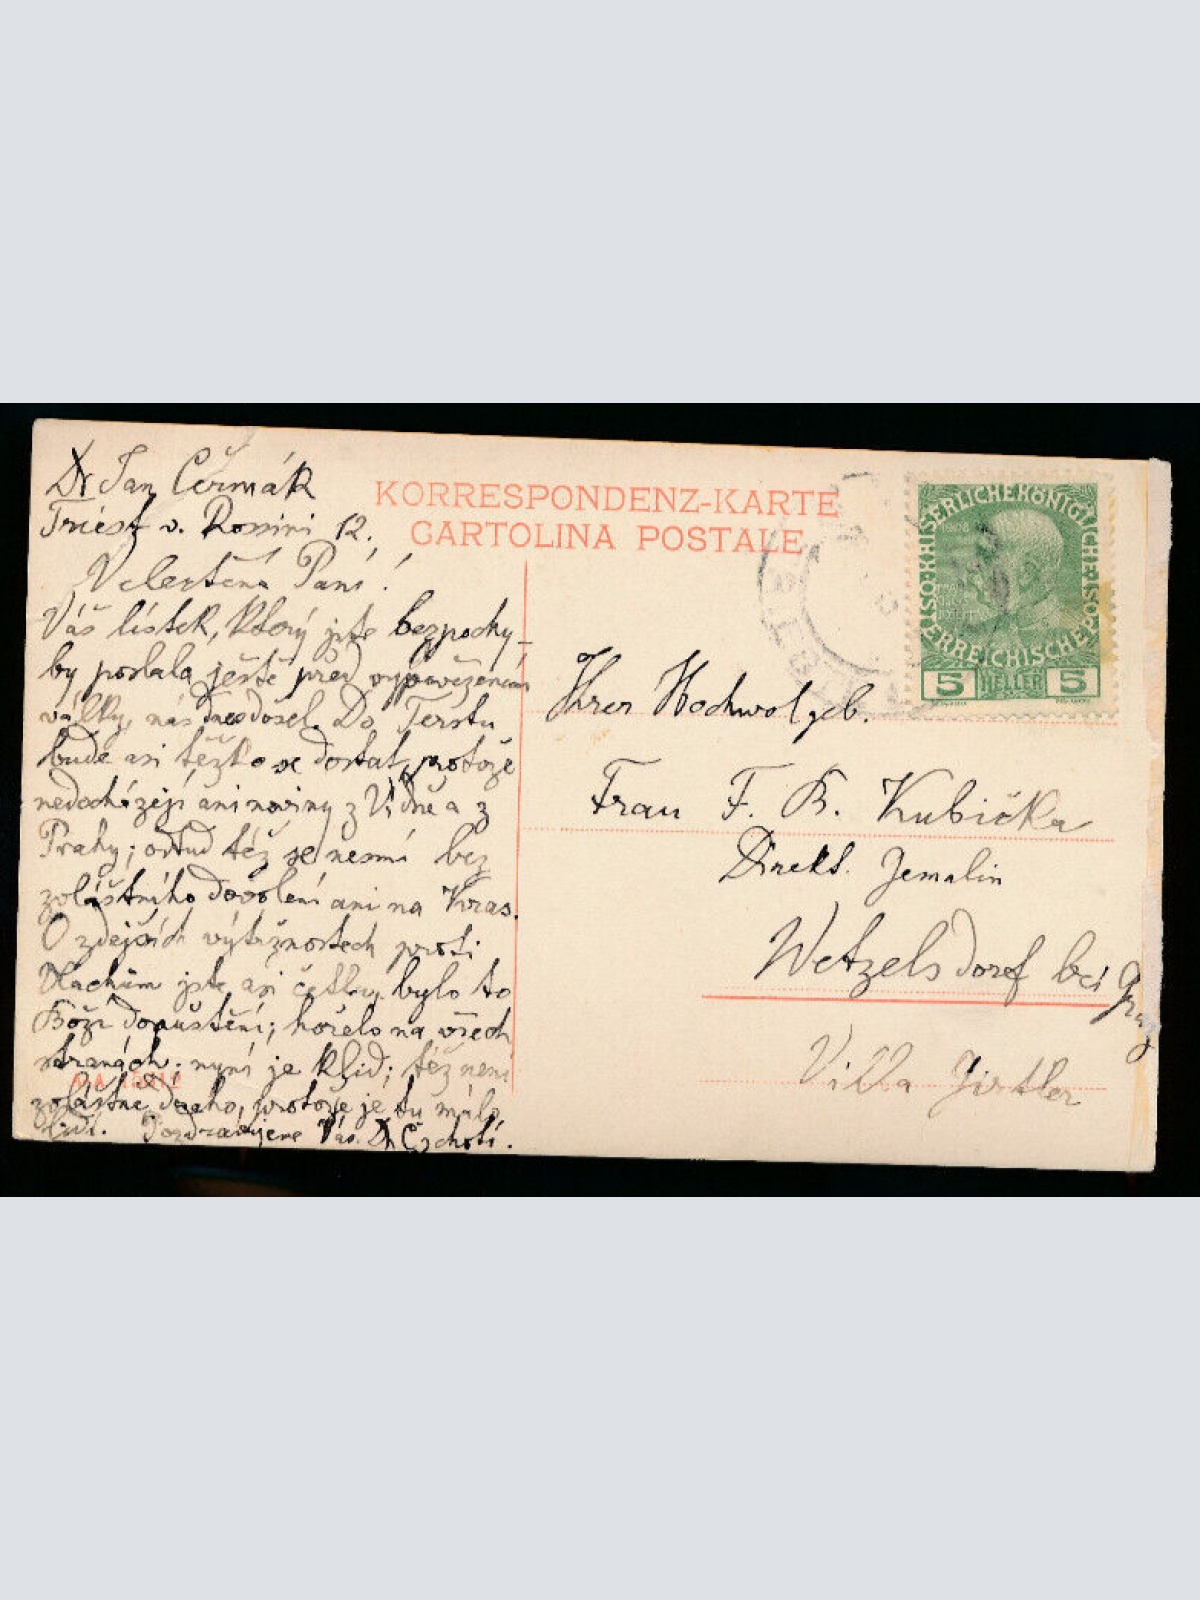 Dr Jan Čermák
Triest v. Rossini 12.
Velectěná Paní!
Váš lístek, který jste bezpochy-
by poslala ještě před vypovězením
války, nás dnes došel. Do Terstu
bude asi těžko se dostat, protože
nedocházejí ani noviny z Vídně a z
Prahy; odtud též se nesmí bez
zvláštního dovolení ani na Kras.
O zdejších výtržnostech proti
Vlachům jste asi četla, bylo to
Boží dopuštění; hořelo na všech
stranách; nyní je klid; též není
zvláštně draho, protože je tu málo
lidí. Pozdravujeme Vás. Dr
KORRESPONDENZ-KARTE
CARTOLINA POSTALE
KAISERLICHE KÖNIGLICHE
ÖSTERREICHISCHE POST
5 HELLER 5
Ihrer Hochwolgeb.
Frau F. B. Kubička
Direkt. Gemalin
Wetzelsdorf bei Graz
Villa Girtler